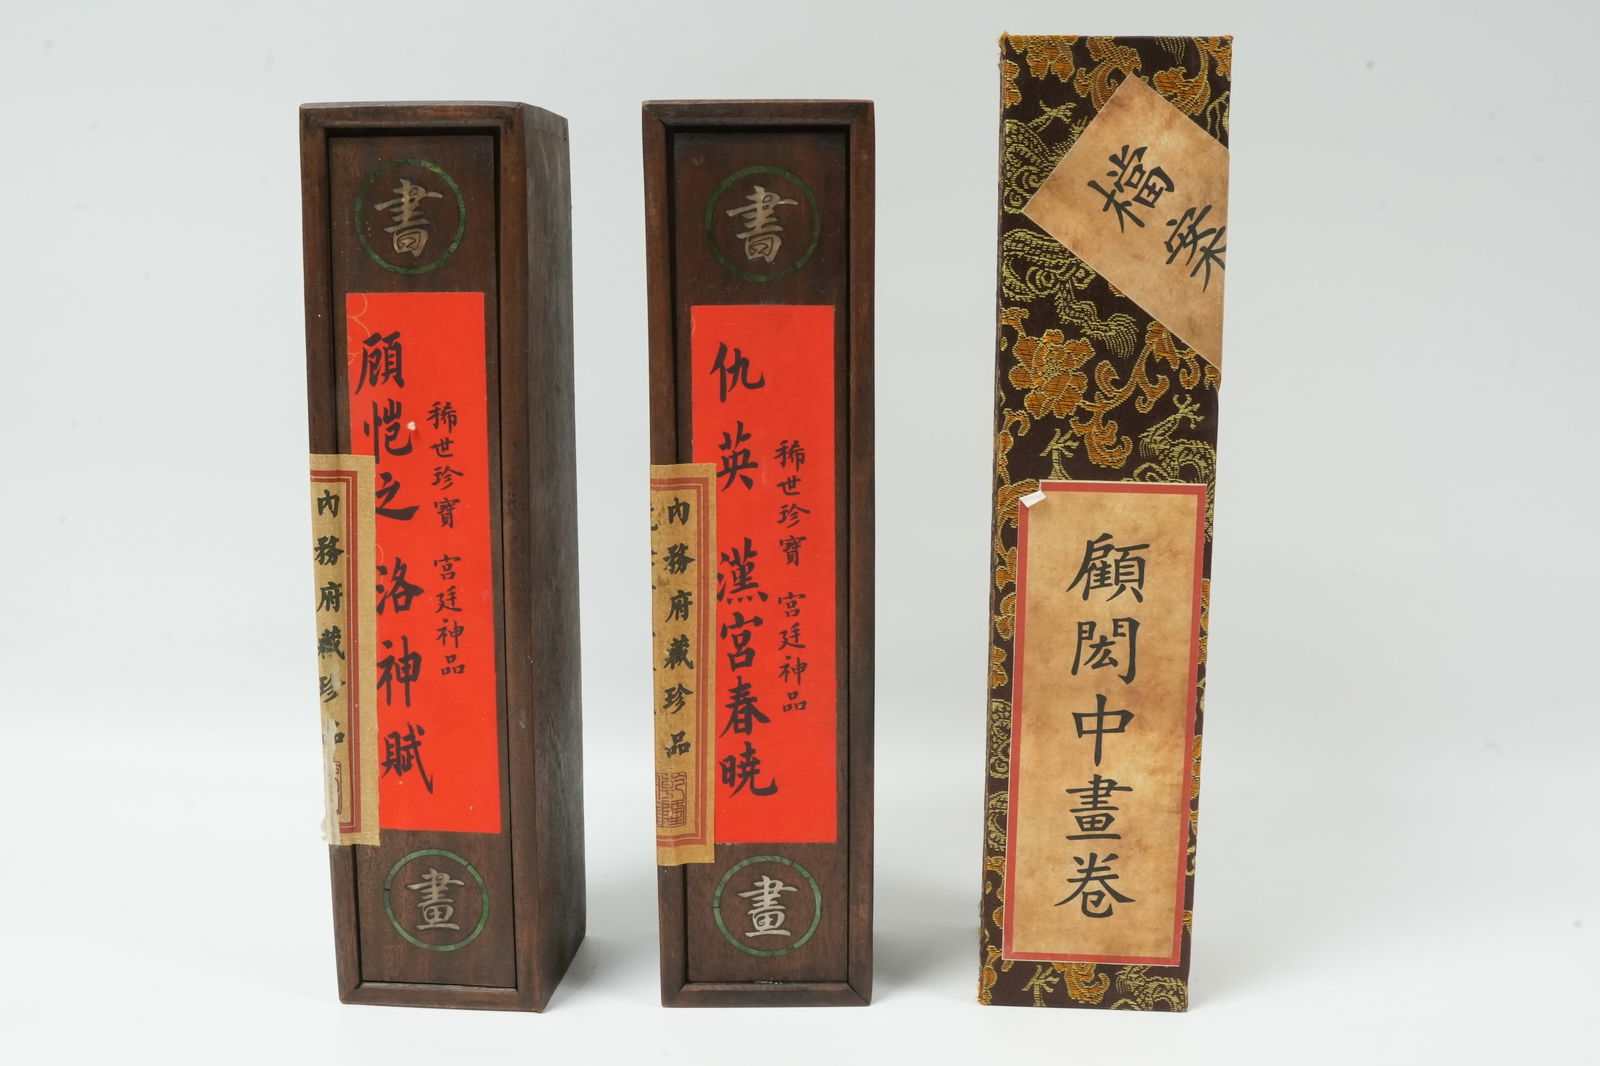 書
顾恺之 洛神賦
稀世珍寶 宮廷神品
內務府藏珍品
畫
書
仇英 漢宮春暁
稀世珍寶 宮廷神品
內務府藏珍品
乾隆
畫
檔案
顧閎中畫卷